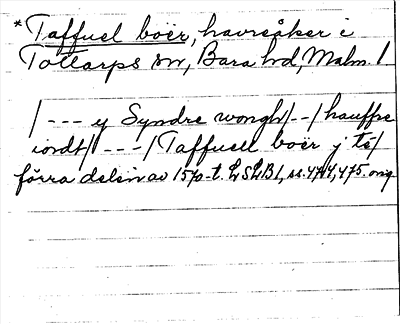 *Taffuel boër, havreåker i
Tottarps sn, Bara hd, Malm. l
/--- y Syndre wongh/--/hauffre
iordt/ ---/Taffuell boër j te/
förra delen av 1570-t. LSLB1, ss. 474, 475. orig